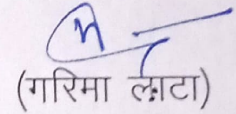 (गरिमा लाटा)